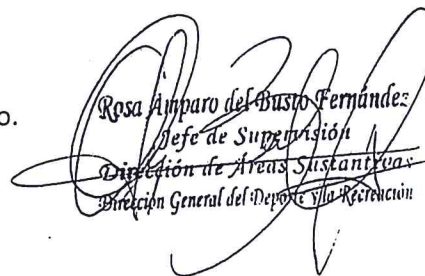 o.
Rosa Amparo del Busto Fernández
Jefe de Supervisión
Dirección de Areas Sustantivas
Dirección General del Deporte y la Recreación